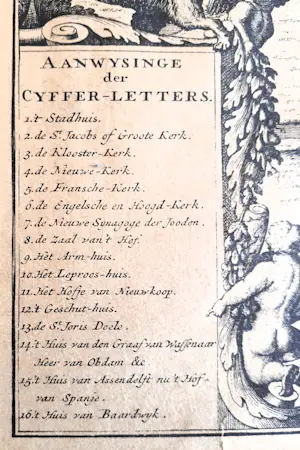 AANWYSINGE
der
CYFFER-LETTERS.
1.'t Stadhuis.
2.de St. Jacobs of Groote Kerk.
3.de Klooster-Kerk.
4.de Nieuwe-Kerk.
5.de Fransche-Kerk.
6.de Engelsche en Hoogd-Kerk.
7.de Nieuwe Synagoge der Jooden.
8.de Zaal van't Hof.
9.Het Arm-huis.
10.Het Leproos-huis.
11.Het Hofje van Nieuwkoop.
12.'t Geschut-huis.
13.de St. Joris Doele.
14.'t Huis van den Graaf van Wassenaar
Heer van Obdam &c
15.'t Huis van Assendelft nu 't Hof
van Spanje.
16.'t Huis van Baardwyk.